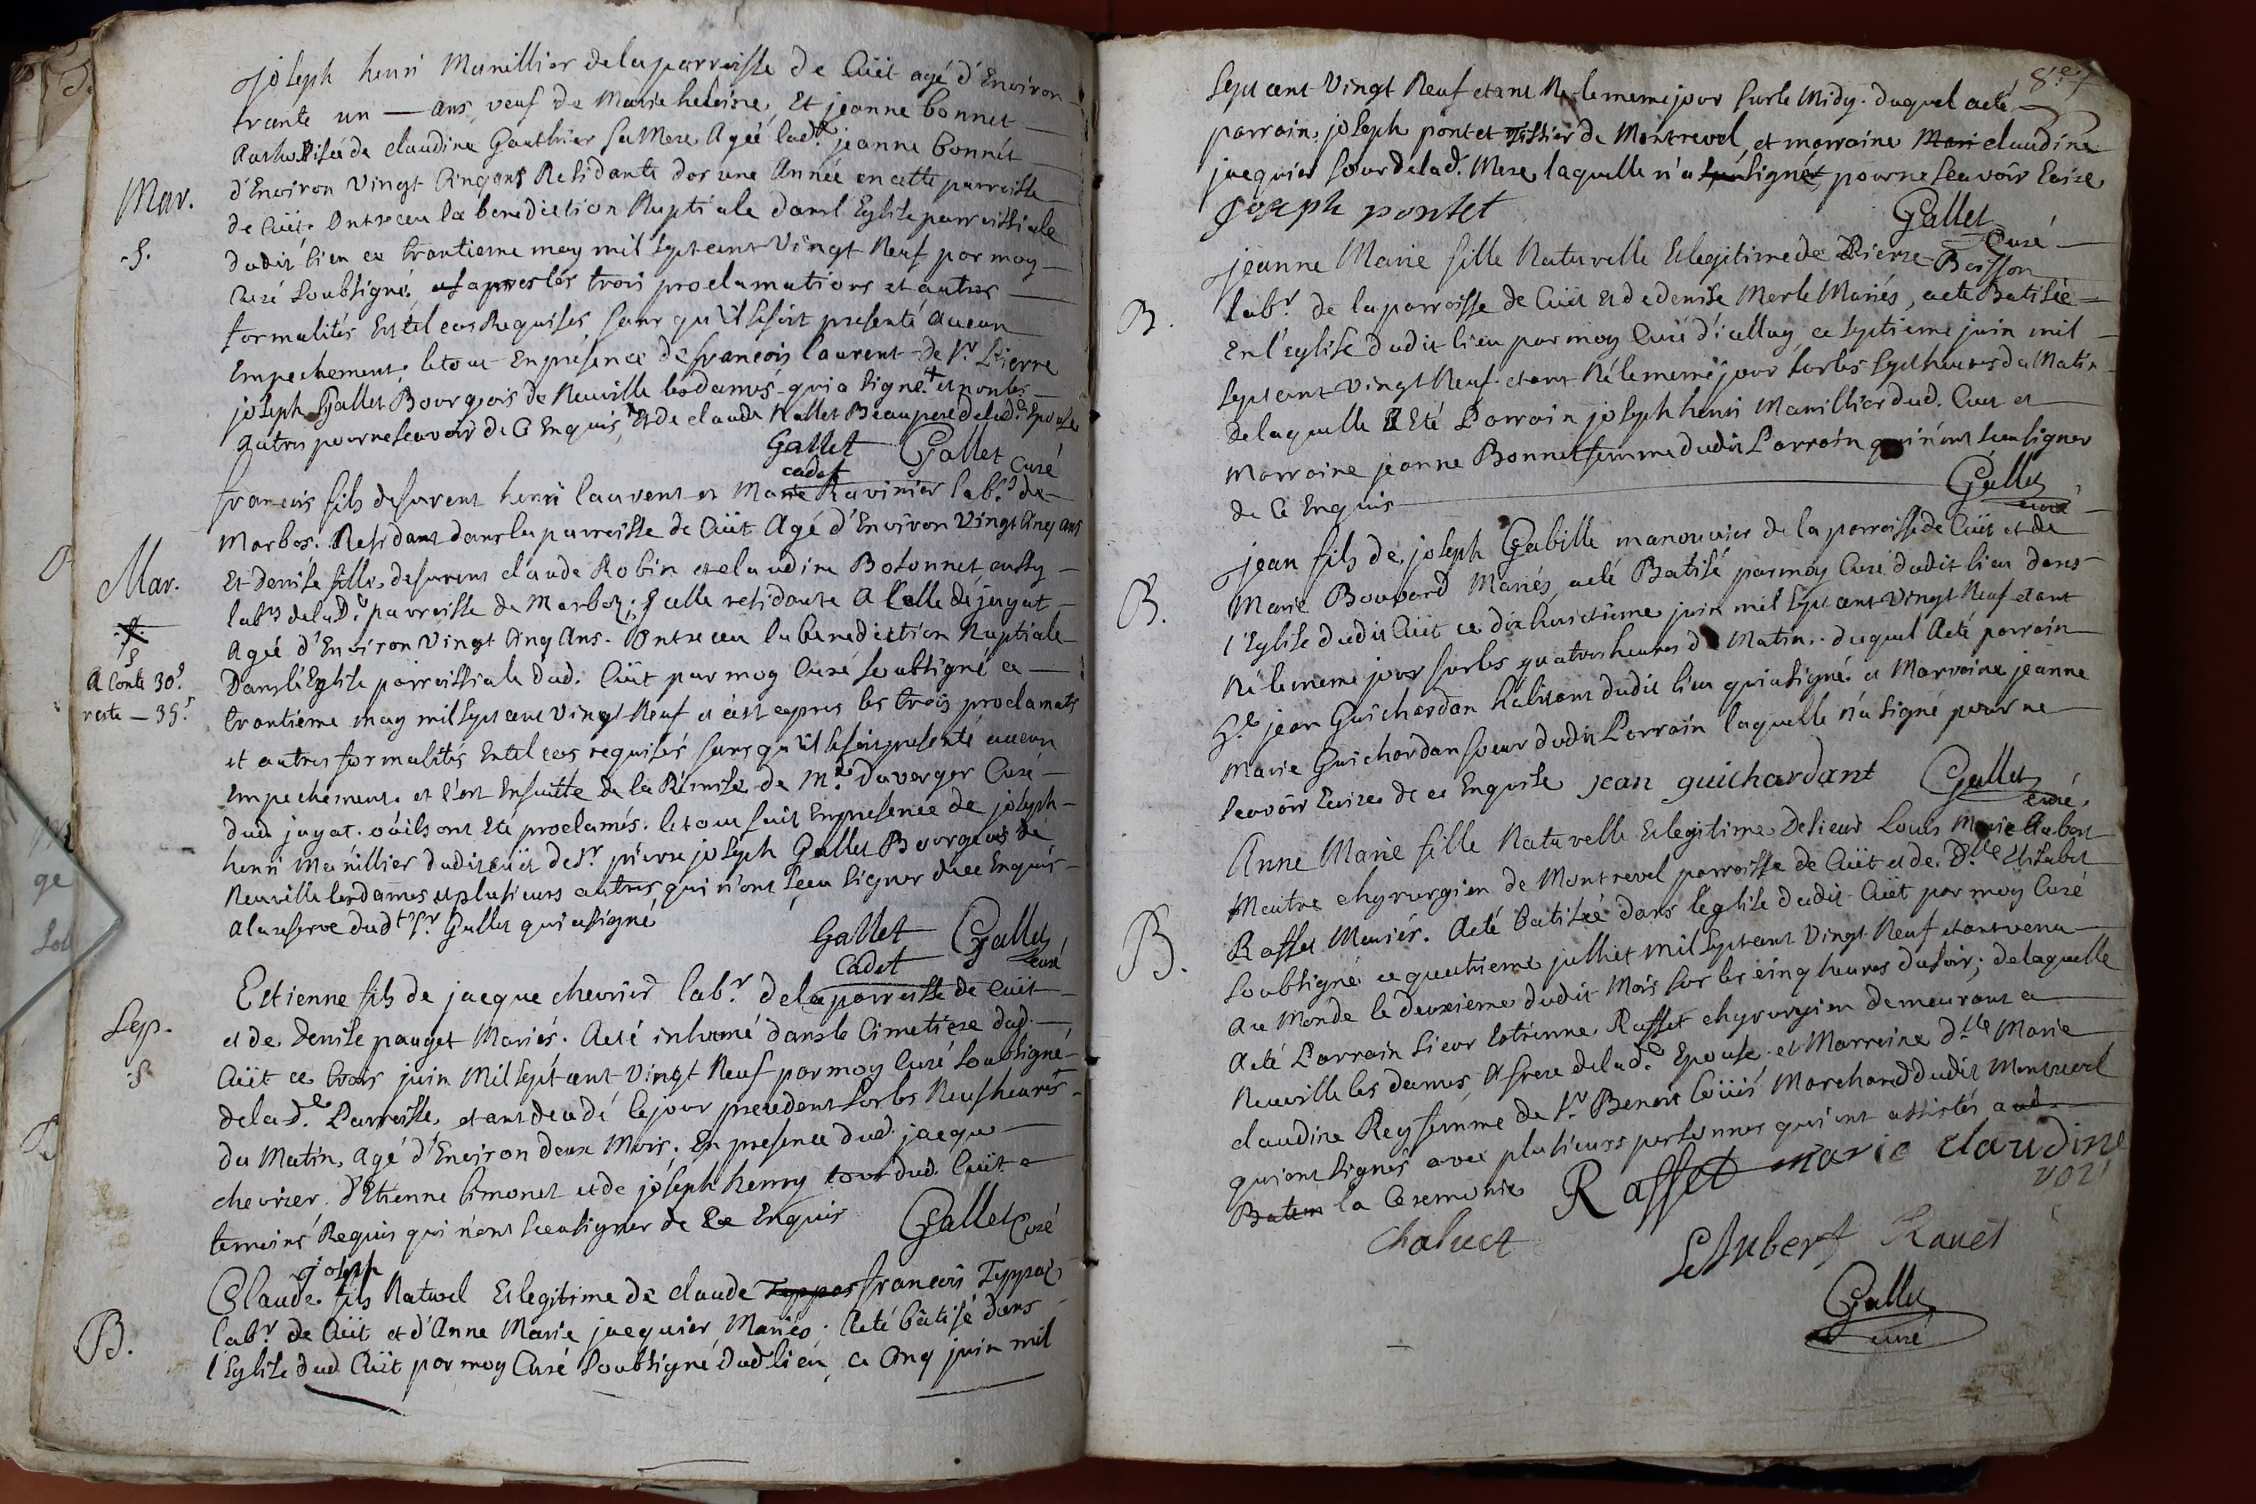 joseph henri Manillier de la parroisse de Cuit agé d'Environ
trante un — ans, veuf de Marie heleine, Et jeanne bonnet
authorisée de claudine Gauthier sa Mere Agée lad.e jeanne bonnet
d'Environ vingt Cinq ans Residante dès une Année en cette parroisse
Mar.
de Cuit. Ont receu la benediction Nuptiale dans l'Eglise parroissiale
.s.
dudit lieu ce trantieme may mil sept cent vingt Neuf par moy
Curé soubsigné, apres les trois proclamations et autres
formalités En tel cas Requises sans qu'il se soit presenté aucun
Empechement. le tout En présence de francois laurent de Sr. Pierre
joseph Gallet Bourgeois de Neuville les dames qui a signé + et non les
autres pour ne scavoir de Ce Enquis, Et de claude Beaupere de lad.e Epouse
Gallet cadet Gallet Curé
francois fils de furent henri laurent et Marie Ravinier lab.rs de
Marbos. Residant dans la parroisse de Cuit Agé d'Environ Vingt Cinq ans
Mar.
Et Denise fille de furent claude Robin et claudine Bosonnet aussy
lab.rs de lad.e parroisse de Marboz; Icelle residante A Celle de jayat
Agée d'Environ vingt Cinq Ans. Ont receu la benediction Nuptiale
.s.
A Conte 30s.
Dans l'Eglise parroissiale dud. Cuit par moy Curé soubsigné ce
reste — 35s.
trantieme may mil sept cent vingt Neuf et c'est apres les trois proclamats
et autres formalités En tel cas requises sans qu'il se soit presenté aucun
Empechement. et c'est Ensuitte de la Rémise de Mr. duverger Curé
dud jayat. où ils ont Eté proclamés. le tout fait En presence de joseph
henri Manillier dudit cuit de Sr. pierre joseph Gallet Bourgeois de
Neuville les dames et plusieurs autres qui n'ont sceu signer de ce Enquis
a la reserve dudt Sr. Gallet qui a signé
Gallet cadet Gallet curé
Sep.
Estienne fils de jacque chevrier lab.r de la parroisse de cuit
.s.
et de Denise pauget Mariés. A eté inhumé dans le Cimetiere dud.
Cuit ce trois juin Mil sept cent vingt Neuf par moy Curé soubsigné
de lad.e Parroisse, etant decedé le jour precedent sur les Neuf heures
du Matin, Agé d'Environ deux Mois; En presence dud. jacque
chevrier, d'Etienne limonet et de joseph henry tous dud. Cuit
temoins Requis qui n'ont sceu signer de Ce Enquis Gallet Curé
joseph
B.
Claude fils Naturel Et legitime de claude Teppoz francois Teppoz
lab.r de Cuit et d'Anne Marie jacquier Mariés. A eté bâtisé dans
l'Eglise dud Cuit par moy Curé soubsigné dud lieu, ce Cinq juin mil
8.e
sept cent Vingt Neuf etant Né le meme jour sur le Midy. duquel a eté
parrain joseph pontet tissier de Montrevel, et marraine Mari claudine
jacquier sœur de lad. Mere laquelle n'a signé, pour ne scavoir Ecrire
joseph pontet Gallet Curé
B.
jeanne Marie fille Naturelle Et legitime de Pierre Boisson
lab.r de la parroisse de Cuit Et de denise Merle Mariés, a eté Batisée
En l'eglise dudit lieu par moy Curé d'icelluy, ce septieme juin mil
sept cent vingt Neuf. etant Née le meme jour sur les sept heures du Matin
de laquelle A Eté Parrain joseph henri Manillier dud. Cuit et
Marraine jeanne Bonnet femme dudit Parrain qui n'ont sceu signer
de Ce Enquis Gallet curé
B.
jean fils de joseph Gabille manouvrier de la parroisse de Cuit et de
Marie Bouvard Mariés, a eté Batisé par moy Curé dudit lieu dans
l'Eglise dudit Cuit ce dix huictieme juin mil sept cent vingt Neuf etant
Né le meme jour sur les quatres heures du Matin. duquel A eté parrain
jean Guichardan habitant dudit lieu qui a signé et Marraine jeanne
Marie Guichardan sœur dudit Parrain laquelle n'a signé pour ne
scavoir Ecrire de ce Enquise jean guichardant Gallet curé
B.
Anne Marie fille Naturelle Et legitime de sieur Louis Marie Aubert
Meutre chyrurgien de Montrevel parroisse de Cuit et de d.lle Elisabet
Rasset Mariés. A eté batisée dans l'eglise dudit Cuit par moy Curé
soubsigné ce quatrieme julliet mil sept cent Vingt Neuf etant venu
Au Monde le deuxieme dudit Mois sur les cinq heures du soir; de laquelle
A eté Parrain sieur Estienne Rasset chyrurgien demeurant a
Neuville les dames, & frere de lad.e Epouse. et Marraine d.lle Marie
claudine Rey femme de Sr. Benoit Marchand dudit Montrevel
qui ont signés avec plusieurs personnes qui ont assistés a
Batem la Ceremonie Rasset marie claudine
chaluet LAubert
Gallet curé